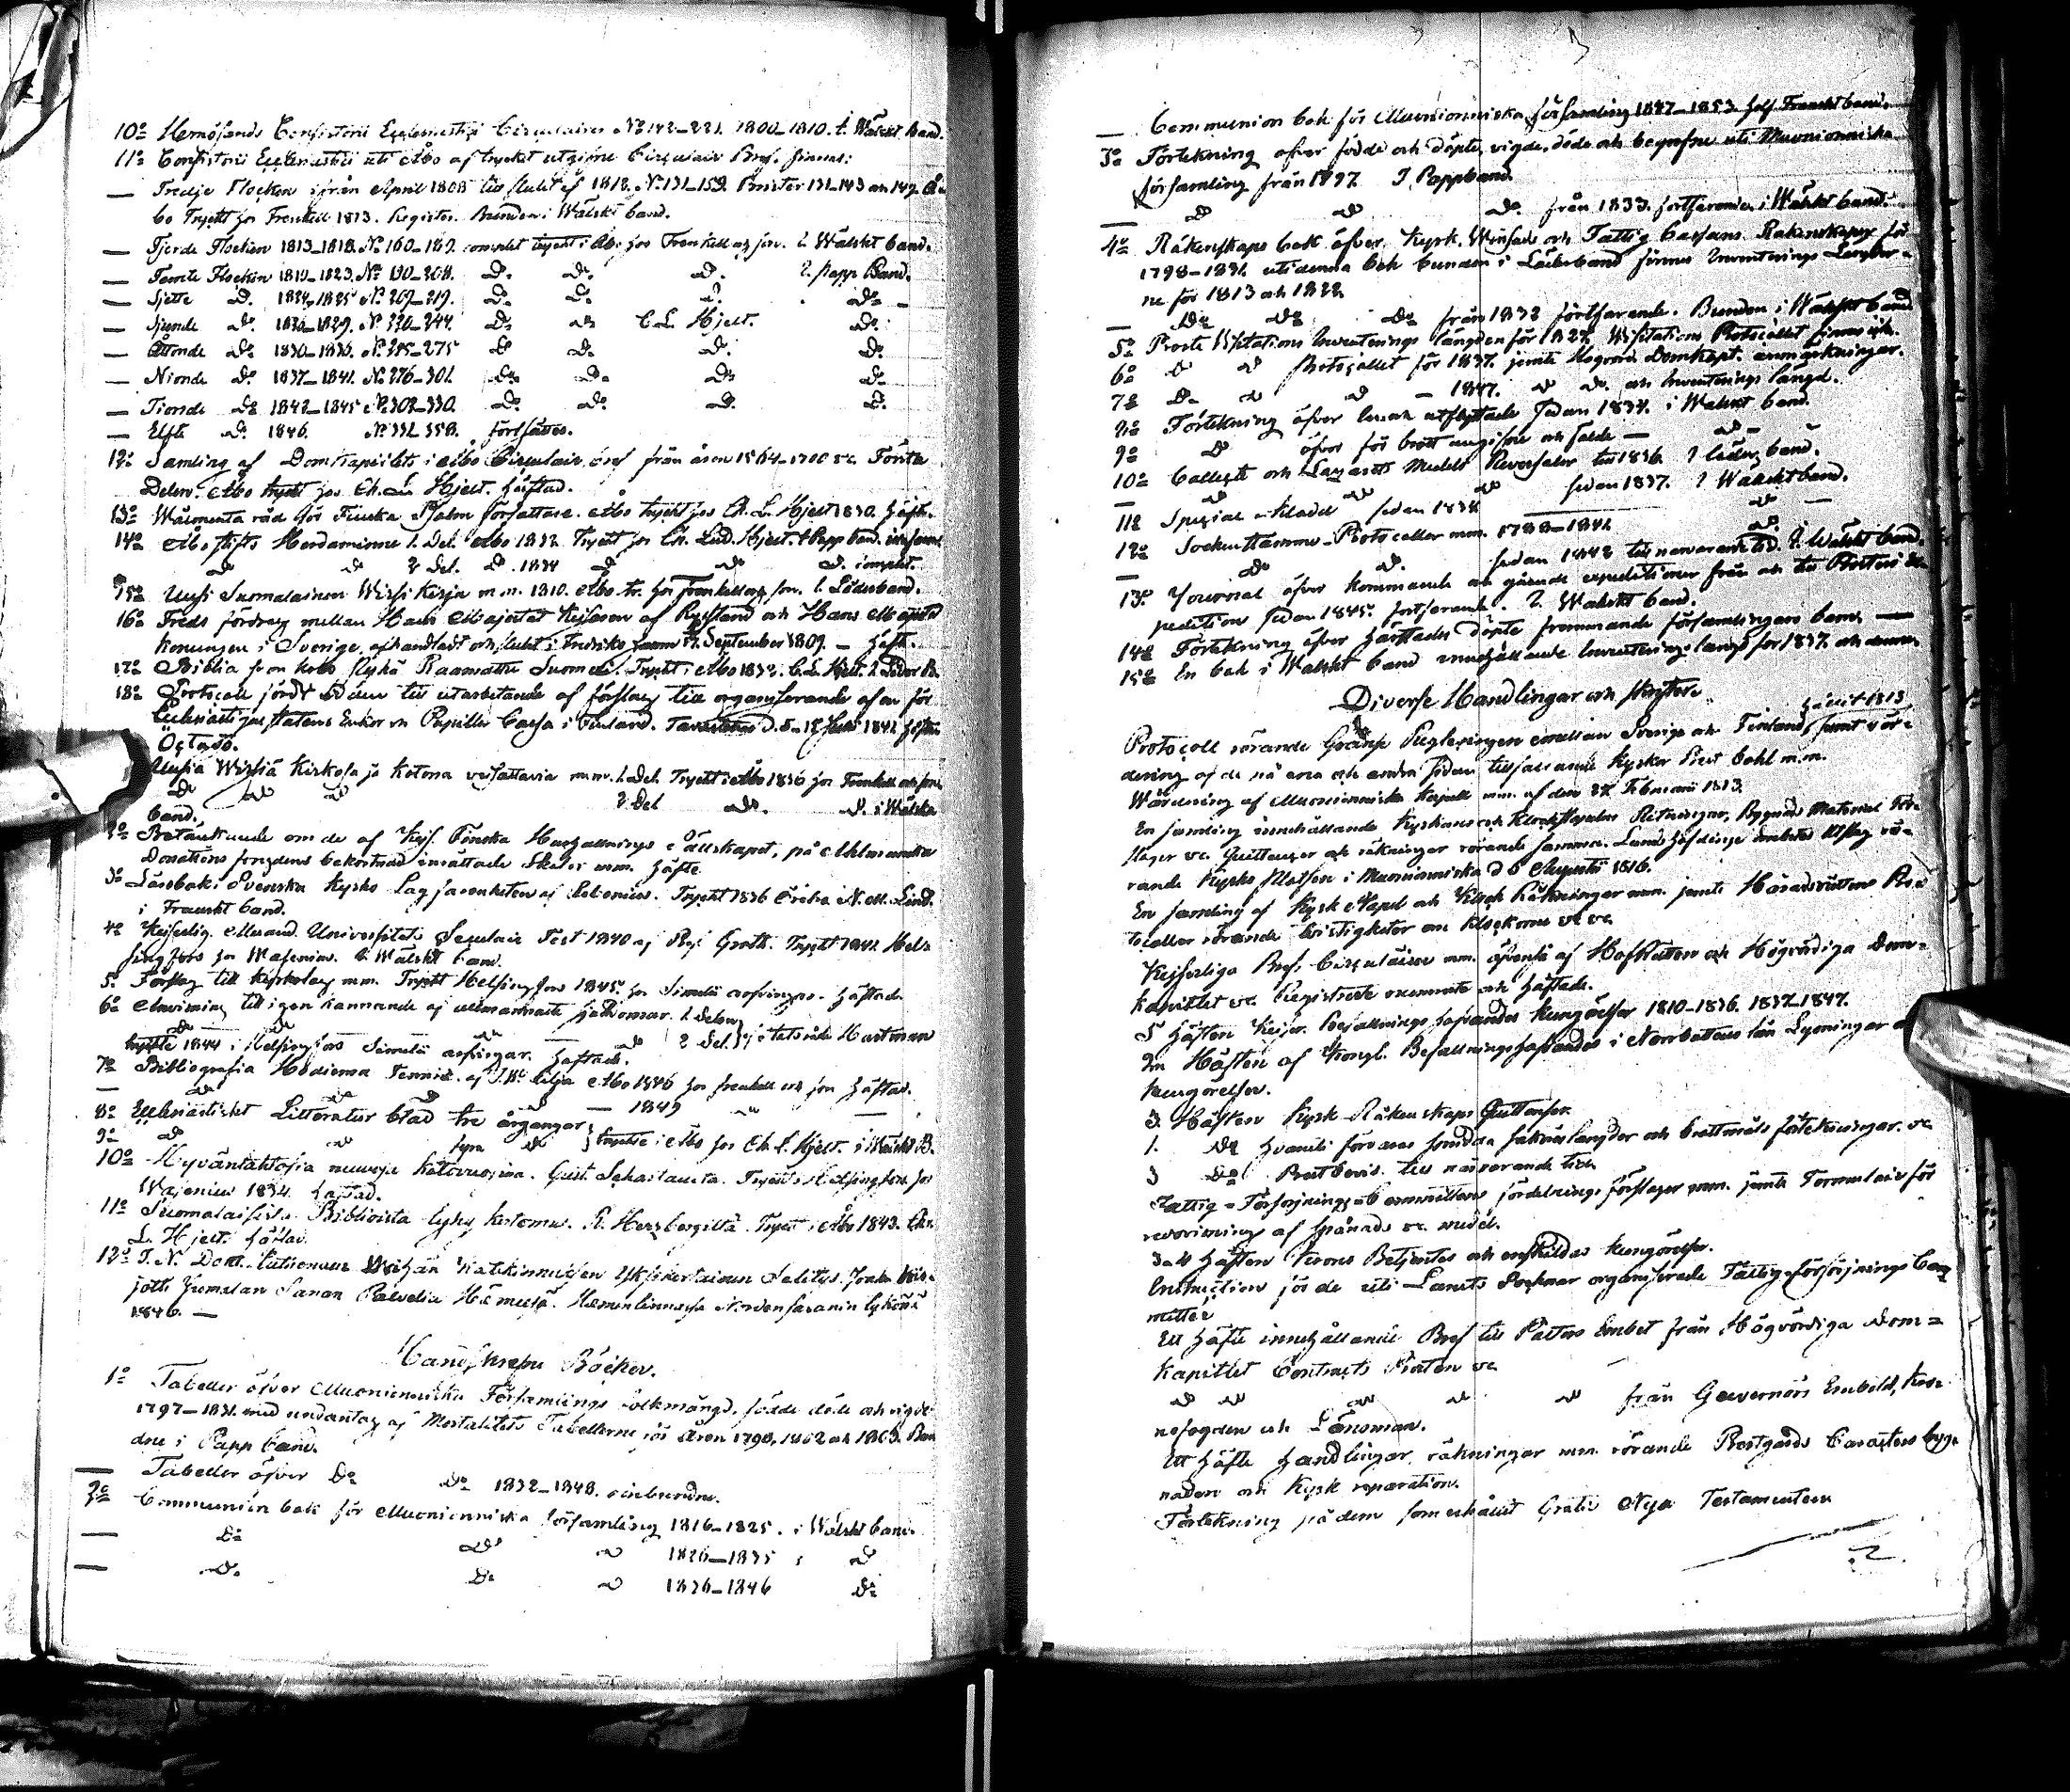 10º Hernösands Consistorii Ecclesiastici Circulairer Nº 142–221. 1800–1810. 1. Wälskt Band.
11º Consistorii Ecclesiastici uti Åbo af trycket utgifne Circulair Bref. finnes:
— Tredje Flocken ifrån April 1808 till slutet af 1812. Nº 131–159. Brister 131–143 och 147.
bo Tryckt hos Frenkell 1813. Register. Bunden i Wälskt band.
— Fjerde Flocken 1813–1818. Nº 160–189. complet tryckt i Åbo hos Frenkell och son. 1 Wälskt band.
— Femte Flocken 1819–1823. Nº 190–208. Dº Dº Dº 1. Papp Band.
— Sjette Dº 1824–1825 Nº 209–219. Dº Dº Dº Dº –
— Sjunde Dº 1826–1829. Nº 220–244. Dº Dº C. L. Hjelt. Dº
— Åttonde Dº 1830–1836. Nº 245–275 Dº Dº Dº Dº
— Nionde Dº 1837–1841. Nº 276–301. Dº Dº Dº Dº
— Tionde Dº 1842–1845 Nº 302–330. Dº Dº Dº Dº
— Elfte Dº 1846. Nº 331. 358. fortsättes.
12º Samling af Domkapitlets i Åbo Circulair bref från åren 1564–1700 &c. Första
Delen. Åbo tryckt hos Ch. L. Hjelt. häftad.
13º Wälmenta råd för Finska Psalm författare. Åbo tryckt hos Ch. L. Hjelt 1830. häft.
14º Åbo stifts Herdaminne 1. Del. Åbo 1832. Tryckt hos Ch. Lud. Hjelt. 1 Papp band.
Dº Dº 2 Del. Dº 1834 Dº Dº Dº complet.
15º Uusi Suomalainen Wirsi Kirja m.m. 1810. Åbo tr. hos Frenkell och son. 1. Läderband.
16º Freds fördrag mellan Hans Majestät Kejsaren af Ryssland och Hans Majestät
Konungen i Sverige, afhandladt och slutet i Fredrikshamn September 1809. — häft.
17º Biblia se on koko Pyhä Raamattu Suomexi. Tryckt i Åbo 1832. C. L. Hjelt. 1. Läder B.
18º Protocoll förd till utarbetande af förslag till organiserande af en för
Ecclesiastique statens Enkor och Pupiller Cassa i Finland. 1842 häftad
Octavo.
Uusia Wirsiä Kirkosa ja Kotona veisattavia m.m. 1. Del. Tryckt i Åbo 1836 hos Frenkell och son.
Dº Dº Dº 2 Del Dº Dº i Wälska
band.
2º Betänkande om de af Kejs. Finska Hushållnings Sällskapet, på Ahlmanska
Donations fondens bekostnad inrättade Skolor m.m. häfte
3º Läsebok i Svenska Kyrko Lagfarenheten af Rabenius. Tryckt 1836 Örebro N. M. Lindh
i Franskt band.
4º Kejserlig. Alexand. Universitets Secular Fest 1840 af Prof. Groth. Tryckt 1842. Hel-
singfors hos Wasenius. 1. Wälskt band.
5. Förslag till Kyrkolag m.m. Tryckt Helsingfors 1845. hos Simelii arfvingar. häftad.
6º Anvisning till igen kännande af allmännaste sjukdomar. 1. Delen
Dº Dº Dº Dº 2 Del. } af Statsrådet Hartman
tryckte 1844 i Helsingfors Simelii arfvingar. häftade.
7º Bibliografia Hodierna Fennica. af J. W. Lilja Åbo 1846 hos Frenkell och son häftad.
— Dº Dº — 1847 Dº —
8º Ecclesiastiskt Litteratur blad tre årgångar
9º Dº Dº fyra Dº } tryckte i Åbo hos Ch. L. Hjelt. i Wälskt B.
10º Hyväntahtosia neuvoja katovuosina. Gust. Tryckt i Helsingfors hos
Wasenius 1834. häftad.
11º Suomalaisista Biblioista lyhy kertomus. R. Hertzbergiltä. Tryckt i Åbo 1843. Chr.
L. Hjelt. häftad.
12º Lutheruxen Wähän Katekismuxen Yksikertainen Selitys.
Jumalan Sanan Palvelia Hämeesä. Hämeenlinnassa
1846. —
Handskrefne Böcker.
1º Tabeller öfver Muonioniska Församlings folkmängd, födde döde och vigde
1797–1831. med undantag af Mortalitets Tabellerne för åren 1798, 1802 och 1803. Bun
dne i Papp band.
— Tabeller öfver Dº Dº 1832–1848. oinbundne.
2º Communion bok för Muonioniska församling 1816–1825. i Wälskt band
— Dº Dº Dº 1826–1835 i Dº
— Dº Dº Dº 1836–1846 Dº
— Communion bok för Muonioniska församling 1847–1853. half Franskt band.
3º Förtekning öfver födde och döpte, vigde, döde och begrafne uti Muonioniska
församling från 1797. I Pappband.
— Dº Dº Dº från 1833. fortfarande i Wälskt band.
4º Räkenskaps bok öfver Kyrk, Winfads och Fattig Cassans Räkenskaper för
1798–1831. uti denna bok bunden i Läderband finnes Inventerings Längder-
ne för 1813 och 1822
— Dº Dº Dº från 1832 fortfarande. Bunden i Wälskt band
5º Prosts Visitations Inventerings längden för 1822. Visitations Protocollet finnes ick.
6º Dº Dº Protocollet för 1837. jemte Högvörd. Domkapit. anmärkningar.
7º Dº Dº Dº — 1847. Dº Dº och Inventerings längd.
8º Förtekning öfver in och utflyttade sedan 1834. i Wälskt band.
9º Dº öfver för brott angifne och fälde — Dº –
10º Collect och Lazaretts Medels Reversaler till 1836. 1 läder band.
Dº Dº Dº sedan 1837. 1 Wälskt band.
11º Special – Kladd sedan 1838 Dº —
12º Sockenstämmo-Protocoller m.m. 1788–1841. Dº
— Dº Dº sedan 1842 till nuvarande tid. 1. Wälskt band.
13º Journal öfver kommande och gående expeditioner från och till Pastors Ex-
pedition sedan 1845. fortfarande. 1. Wälskt band.
14º Förtekning öfver härstädes döpte främmande församlingars barn —
15º En bok i Wälskt band innehållande Inventerings längd för 1837. och
Diverse Handlingar och Skrifter.
Protocoll rörande Gräns Regleringen emellan Sverige och Finland, samt vär-
hållit 1813
dering af de på ena och andra sidan tillfallande Kyrkor Prest bohl m.m.
Wärdering af Muonioniska Kapell m.m. af den 27. Februarii 1813.
En samling innehållande Kyrkans och Klockstapelns Ritningar, Byggnads Material För-
slager &c. Quittanser och räkningar rörande samma. Landshöfdinge Embetes Utslag rö-
rande Kyrko Platsen i Muonioniska d 5 Augusti 1816.
En samling af Kyrk Kapell och Klock Räkningar m.m. jemte Häradsrättens Pro-
tocoller rörande tvistigheter om Klockorne &c &c.
Kejserliga Bref, Circulairer m.m. äfvensom af Hofrätten och Högvördiga Dom-
kapitlet &c. Registrerte numererte och häftade.
5 Häften Kejser. Befallningshafvandes Kungörelser 1810–1836. 1837–1847.
Häften af Kongl. Befallningshafvandes i Norrbottens län Lysningar
Kungörelser.
3. Häften Kyrk-Räkenskaps Quittenser.
1. Dº hvaruti förvaras spridda saköreslängder och brottmåls förtekningar &c
3 Dº Prestbevis till nuvarande tid.
Fattig-Försörjnings-Committéens fördelnings förslager m.m. jemte Formulair för
revorvering af spånads &c. medel.
Häften Krono Betjentes och enskildas kungörelser.
Instruction för de uti Länets Socknar organiserade Fattig-försörjnings Com
mittéer
Ett häfte innehållande Bref till Pastors Embet från Högvördiga Dom-
kapitlet Contracts Prosten &c.
Dº Dº Dº Dº Dº från Gouvernörs Embetet, Kro-
nofogden och Länsman.
Ett häfte handlingar, räkningar m.m. rörande Prestgårds Caractors bygg-
naden och Kyrk reparation.
Förtekning på dem som erhållit Gratis Nya Testamenten